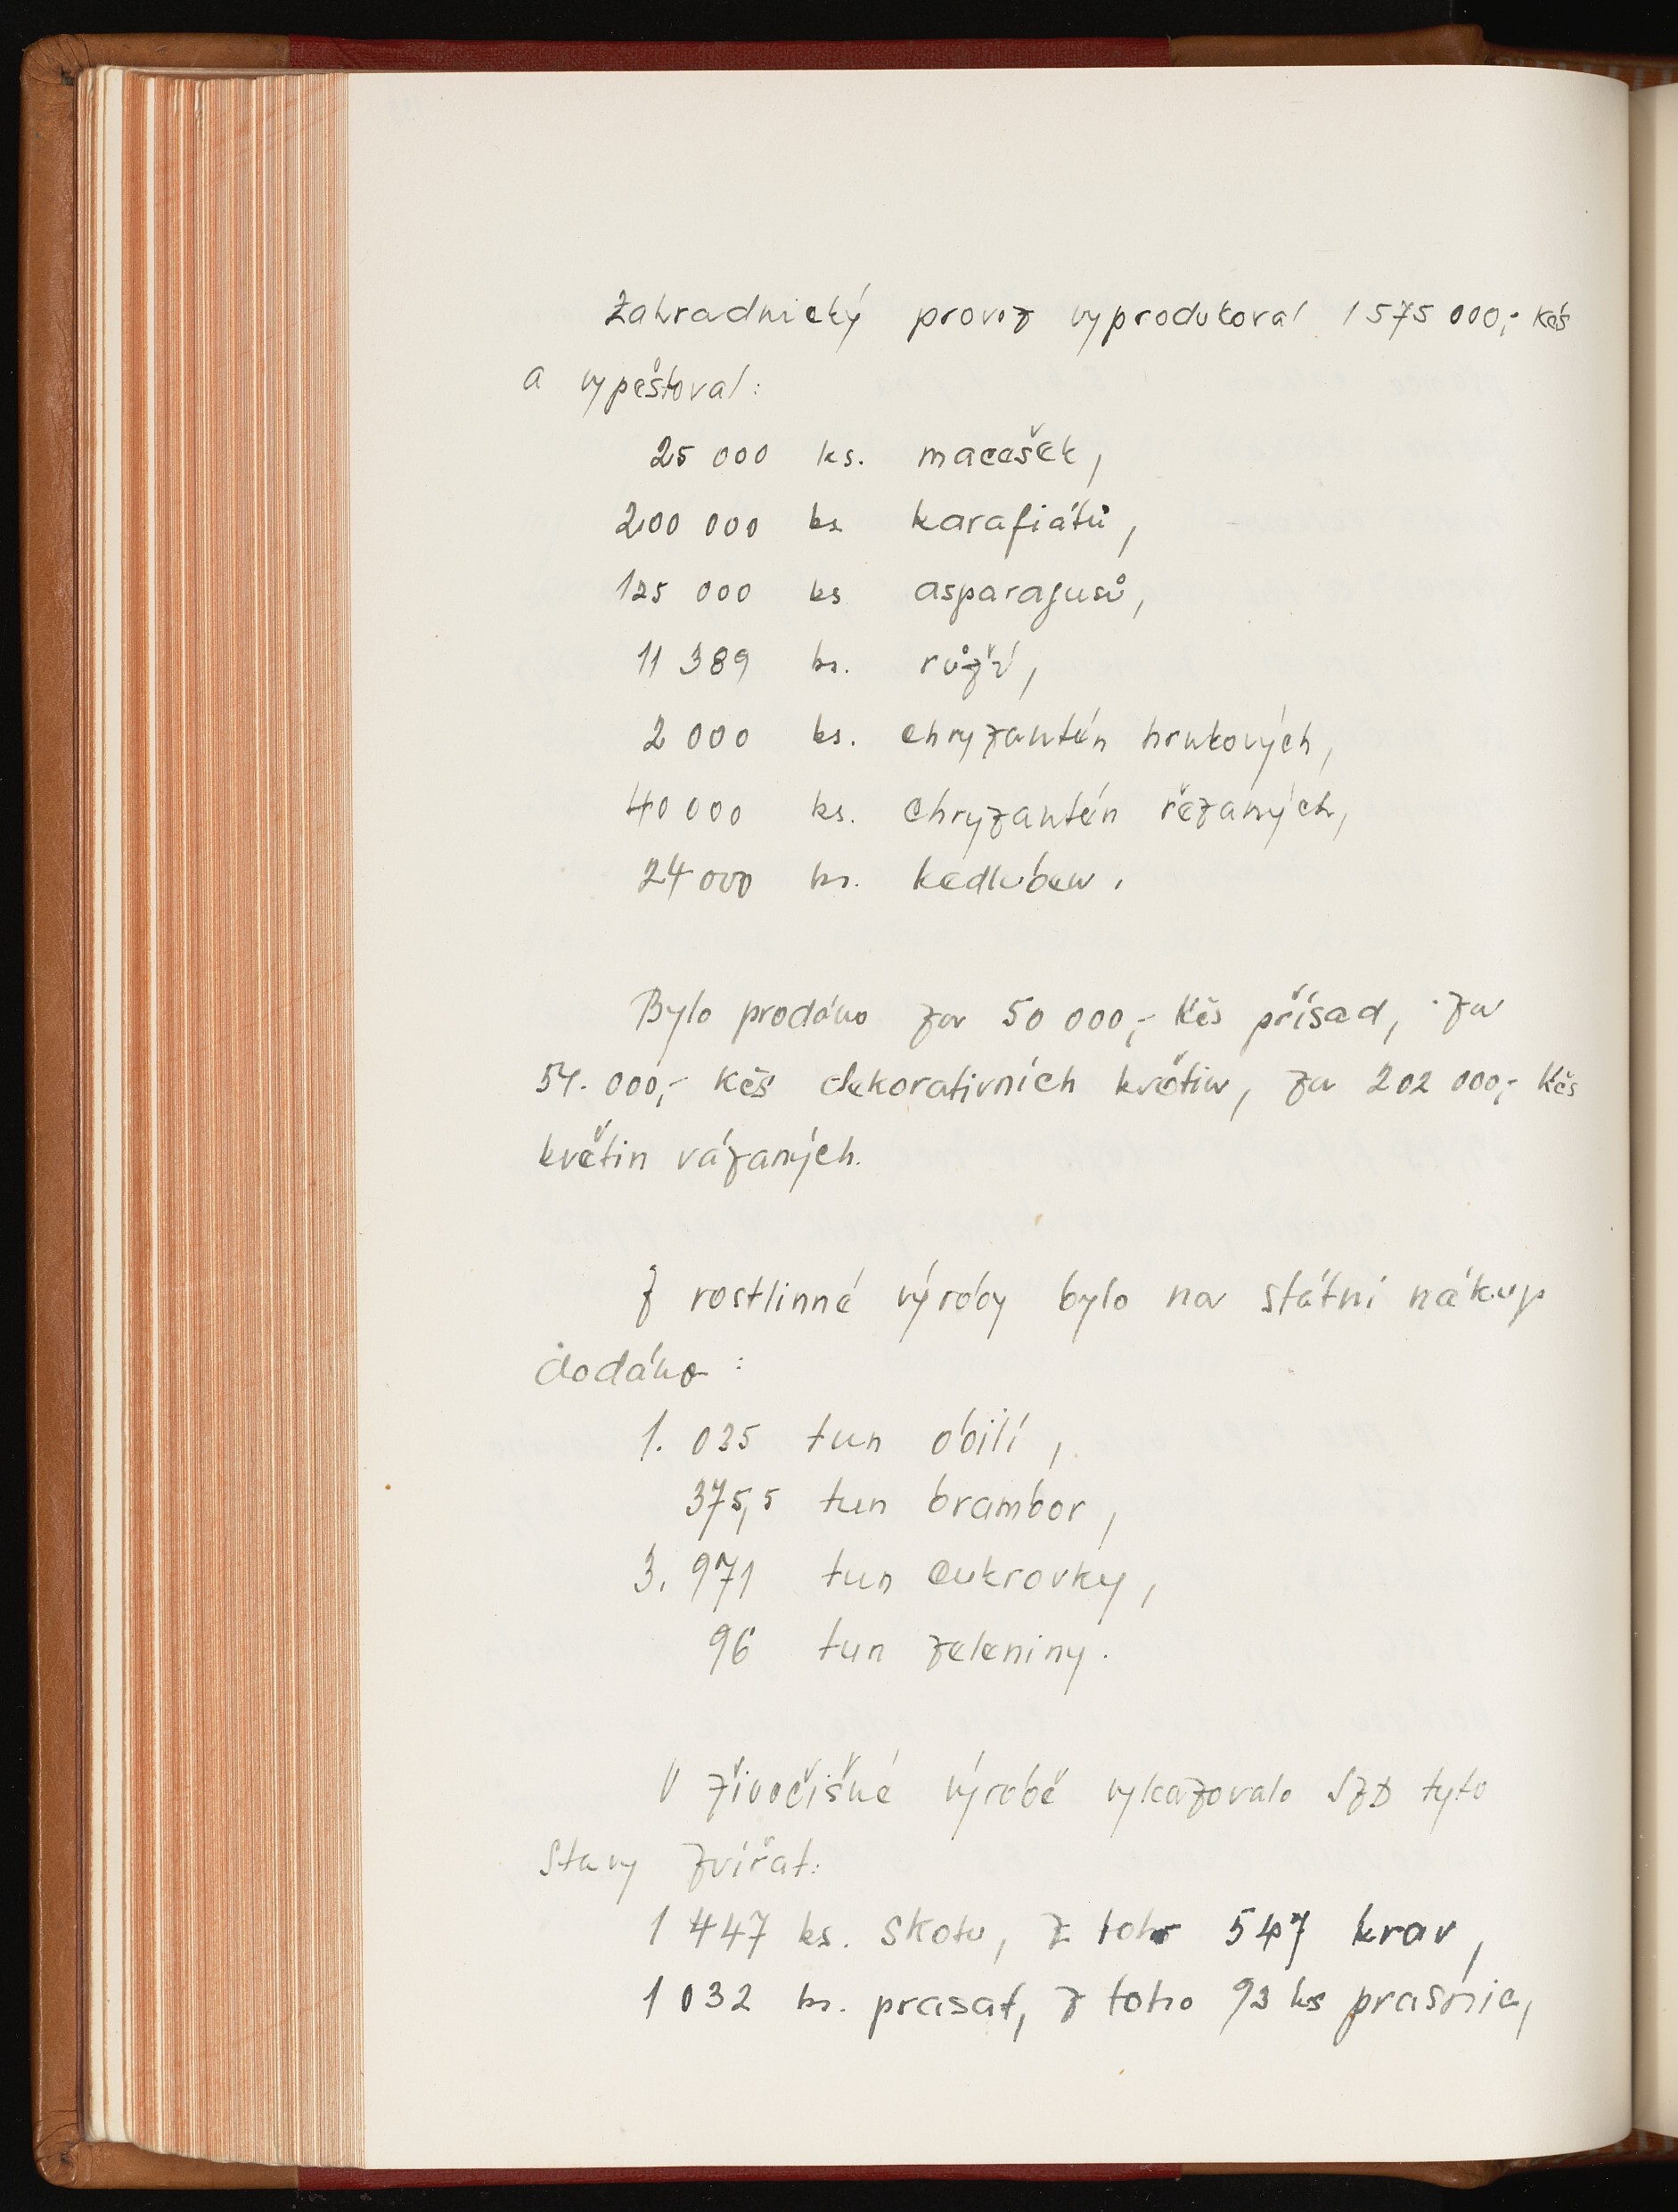 Zahradnický provoz vyprodukoval 1 575 000,- Kčs
a vypěstoval:
25 000 ks. macešek,
200 000 ks karafiátů,
125 000 ks asparagusů,
11 389 ks. růží,
2 000 ks. chryzantén hrnkových,
40 000 ks. chryzantén řezaných,
24 000 ks. kedluben.
Bylo prodáno za 50 000,- Kčs přísad, za
54. 000,- Kčs dekorativních květin, za 202 000,- Kčs
květin vázaných.
Z rostlinné výroby bylo na státní nákup
dodáno:
1. 035 tun obilí,
375,5 tun brambor,
3. 971 tun cukrovky,
96 tun zeleniny.
V živočišné výrobě vykazovalo JZD tyto
stavy zvířat:
1 447 ks. skotu, z toho 547 krav,
1 032 ks. prasat, z toho 93 ks prasnic,